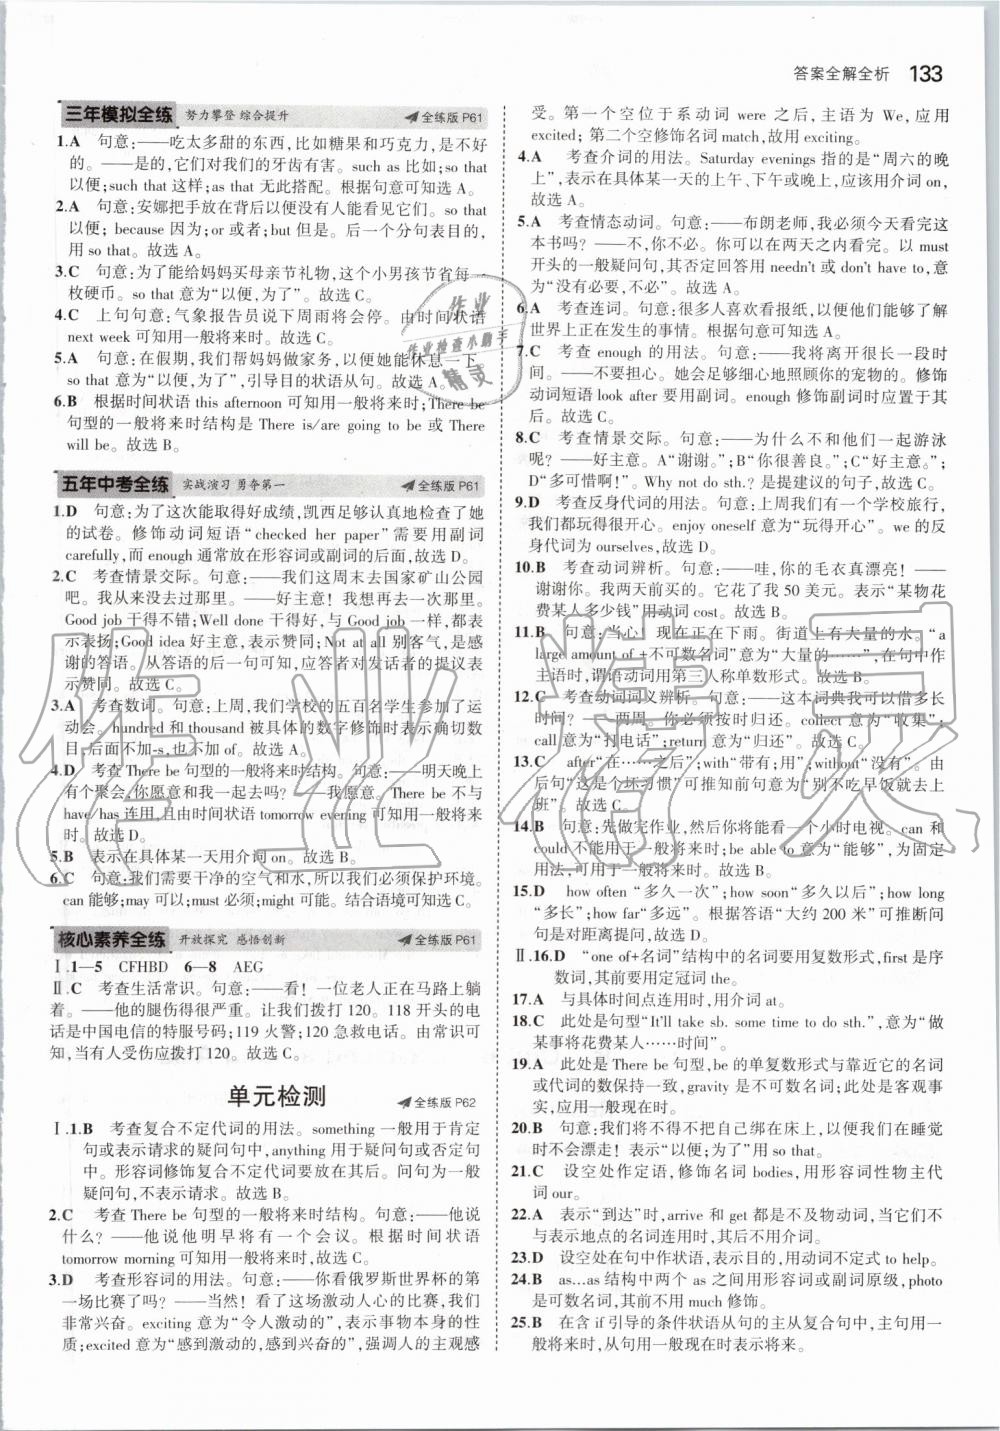 答案全解全析 133
三年模拟全练 努力攀登 综合提升 全练版 P61
1.A 句意:——吃太多甜的东西,比如糖果和巧克力,是不好
的。——是的,它们对我们的牙齿有害。such as 比如;so that
以便;such that 这样;as that 无此搭配。根据句意可知选 A。
2.A 句意:安娜把手放在背后以便没有人能看见它们。so that
以便; because 因为;or 或者;but 但是。后一个分句表目的,
用 so that。故选 A。
3.C 句意:为了能给妈妈买母亲节礼物,这个小男孩节省每一
枚硬币。so that 意为“以便,为了”。故选 C。
4.C 上句句意:气象报告员说下周雨将会停。由时间状语
next week 可知用一般将来时。故选 C。
5.A 句意:在假期,我们帮妈妈做家务,以便她能休息一下。
so that 意为“以便,为了”,引导目的状语从句。故选 A。
6.B 根据时间状语 this afternoon 可知用一般将来时;There be
句型的一般将来时结构是 There is/are going to be 或 There
will be。故选 B。
五年中考全练 实战演习 勇夺第一 全练版 P61
1.D 句意:为了这次能取得好成绩,凯西足够认真地检查了她
的试卷。修饰动词短语“checked her paper”需要用副词
carefully,而 enough 通常放在形容词或副词的后面,故选 D。
2.C 考查情景交际。句意:——我们这周末去国家矿山公园
吧。我从来没有去过那里。——好主意!我想再去一次那里。
Good job 干得不错;Well done 干得好,与 Good job 一样,都
表示表扬;Good idea 好主意,表示赞同;Not at all 别客气,是感
谢的答语。从答语的后一句可知,应答者对发话者的提议表
示赞同。故选 C。
3.A 考查数词。句意:上周,我们学校的五百名学生参加了运
动会。hundred 和 thousand 被具体的数字修饰时表示确切数
目,后面不加-s,也不加 of。故选 A。
4.D 考查There be 句型的一般将来时结构。句意:——明天晚上
有一场足球比赛,你愿意和我一起去吗?——我愿意。There be 不与
have/has 连用,且由时间状语 tomorrow evening 可知用一般将来
时。故选 D。
5.B 表示在具体某一天用介词 on。故选 B。
6.C 句意:我们需要干净的空气和水,所以我们必须保护环境。
can 能够;may 可以;must 必须;might 可能。结合语境可知选 C。
核心素养全练 开放探究 感悟创新 全练版 P61
Ⅰ.1—5 CFHBD 6—8 AEG
Ⅱ.C 考查生活常识。句意:——看!一位老人正在马路上躺
着。——他的腿伤得很严重。让我们拨打 120。118 开头的电
话是中国电信的特服号码;119 火警;120 急救电话。由常识可
知,当有人受伤应拨打 120。故选 C。
单元检测 全练版 P62
Ⅰ.1.B 考查复合不定代词的用法。something 一般用于肯定
句或表示请求的疑问句中,anything 用于疑问句或否定句
中。形容词修饰复合不定代词要放在其后。问句为一般
疑问句,不表示请求。故选 B。
2.C 考查There be 句型的一般将来时结构。句意:——他说
什么?——他说他明早将有一个会议。根据时间状语
tomorrow morning 可知用一般将来时。故选 C。
3.D 考查形容词的用法。句意:——你看俄罗斯世界杯的第
一场比赛了吗?——当然!看了这场激动人心的比赛,我们
非常兴奋。exciting 意为“令人激动的”,表示事物本身的性
质;excited 意为“感到激动的,感到兴奋的”,强调人的主观感
受。第一个空位于系动词 were 之后,主语为 We,应用
excited;第二个空修饰名词 match,故用 exciting。
4.A 考查介词的用法。Saturday evenings 指的是“周六的晚
上”,表示在具体某一天的上午、下午或晚上,应该用介词 on,
故选 A。
5.A 考查情态动词。句意:——布朗老师,我必须今天看完这
本书吗?——不,你不必。你可以在两天之内看完。以 must
开头的一般疑问句,其否定回答用 needn't 或 don't have to,意
为“没有必要,不必”。故选 A。
6.A 考查连词。句意:很多人喜欢看报纸,以便他们能够了解
世界上正在发生的事情。根据句意可知选 A。
7.C 考查 enough 的用法。句意:——我将离开很长一段时
间。——不要担心。她会足够细心地照顾你的宠物的。修饰
动词短语 look after 要用副词。enough 修饰副词时应置于其
后。故选 C。
8.C 考查情景交际。句意:——为什么不和他们一起游泳
呢?——好主意。A“谢谢。”;B“你很善良。”;C“好主意。”;
D“多可惜啊!”。Why not do sth.? 是提建议的句子,故选 C。
9.D 考查反身代词的用法。句意:上周我们有一个学校旅行,
我们都玩得很开心。enjoy oneself 意为“玩得开心”。we 的反
身代词为 ourselves,故选 D。
10.B 考查动词辨析。句意:——哇,你的毛衣真漂亮!——
谢谢你。我两天前买的。它花了我 50 美元。表示“某物花
费某人多少钱”用动词 cost。故选 B。
11.B 句意:当心!现在正在下雨。街道上有大量的水。“a
large amount of +不可数名词”意为“大量的……”,在句中作
主语时,谓语动词用第三人称单数形式。故选 B。
12.C 考查动词词义辨析。句意:——这本词典我可以借多长
时间?——两周。你必须按时归还。collect 意为“收集”;
call 意为“打电话”;return 意为“归还”。故选 C。
13.C after“在……之后”;with“带有;用”;without“没有”。由
后句“这是个坏习惯”可推知前句意为“别不吃早饭就去上
班”。故选 C。
14.B 句意:先做完作业,然后你将能看一个小时电视。can 和
could 不能用于一般将来时;be able to 意为“能够”,为固定
用法,可用于一般将来时。故选 B。
15.D how often “多久一次”;how soon“多久以后”;how long
“多长”;how far“多远”。根据答语“大约 200 米”可推断问
句是对距离提问,故选 D。
Ⅱ.16.D “one of+名词”结构中的名词要用复数形式,first 是序
数词,其前要用定冠词 the。
17.A 与具体时间点连用时,用介词 at。
18.C 此处是句型“It'll take sb. some time to do sth.”,意为“做
某事将花费某人……时间”。
19.A 此处是There be 句型,be 的单复数形式与靠近它的名词
或代词的数保持一致,gravity 是不可数名词。此处是客观事
实,应用一般现在时。
20.B 句意:我们将不得不把自己绑在床上,以便我们在睡觉
时不会漂走!表示“以便;为了”用 so that。
21.C 设空处作定语,修饰名词 bodies,用形容词性物主代
词 our。
22.A 表示“到达”时,arrive 和 get 都是不及物动词,当它们
与表示地点的名词连用时,其后要用介词。
23.D 设空处在句中作状语,表示目的,用动词不定式 to help。
24.B as...as 结构中两个 as 之间用形容词或副词原级,photo
是可数名词,其前不用 much 修饰。
25.B 在含 if 引导的条件状语从句的主从复合句中,主句用一
般将来时,从句用一般现在时表示将来。